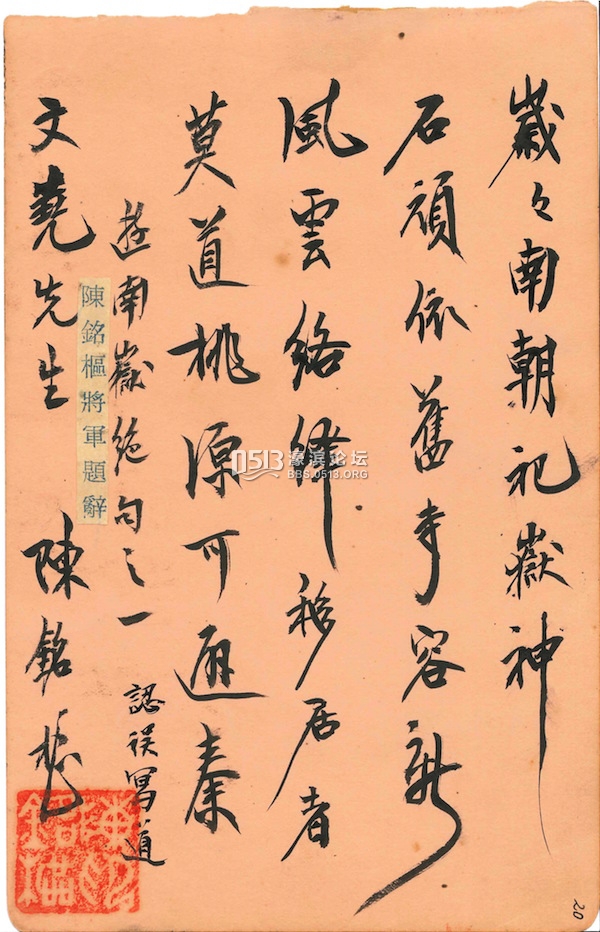 歲々南朝祀嶽神
石頑依舊寺容新
風雲絡繹移居者
莫道桃源可避秦
遊南嶽絕句之一
認誤寫道
文堯先生
陳銘樞
陳銘樞將軍題辭
0513豫滨论坛
BBS.0513.ORG
20